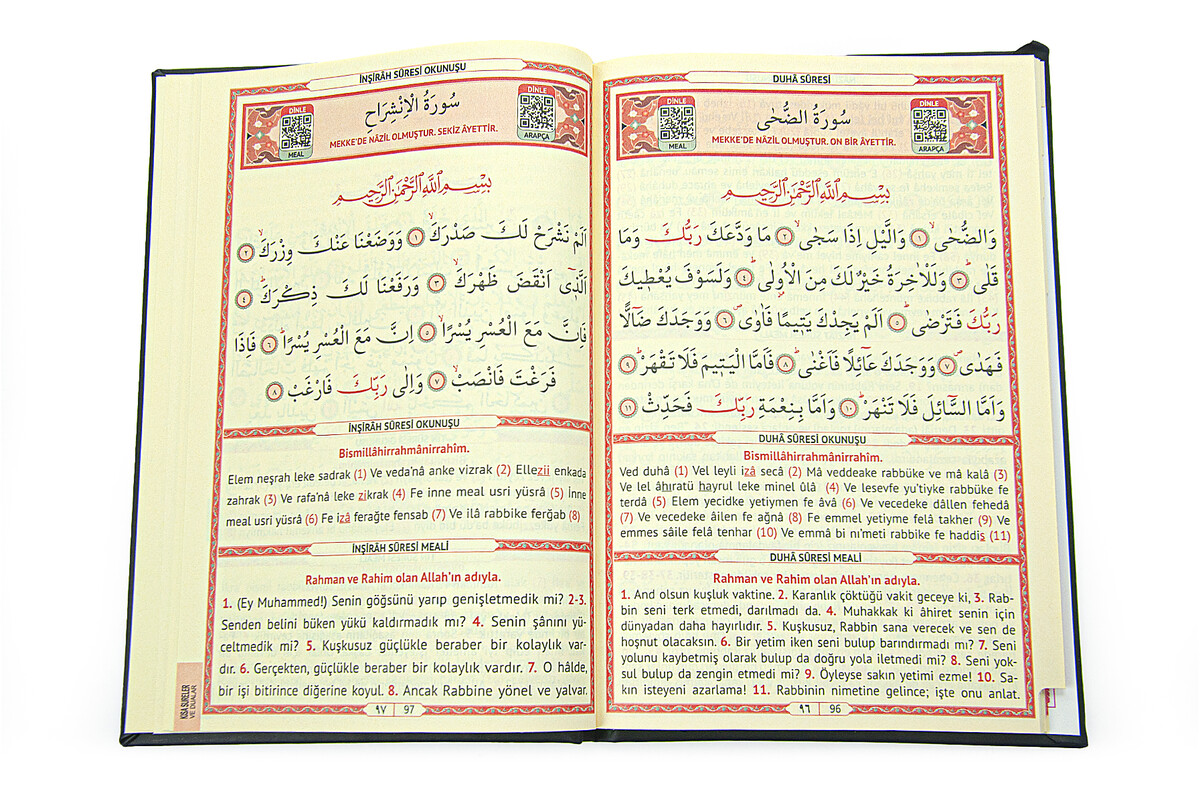 DUHÂ SÛRESİ
DİNLE
MEAL
سُورَةُ الضُّحٰى
MEKKE'DE NÂZİL OLMUŞTUR. ON BİR ÂYETTİR.
DİNLE
ARAPÇA
بِسْمِ اللّٰهِ الرَّحْمٰنِ الرَّحِيمِ
وَالضُّحٰىۙ ﴿١﴾ وَالَّيْلِ اِذَا سَجٰىۙ ﴿٢﴾ مَا وَدَّعَكَ رَبُّكَ وَمَا
قَلٰىۜ ﴿٣﴾ وَلَلْاٰخِرَةُ خَيْرٌ لَكَ مِنَ الْاُو۫لٰىۜ ﴿٤﴾ وَلَسَوْفَ يُعْط۪يكَ
رَبُّكَ فَتَرْضٰىۜ ﴿٥﴾ اَلَمْ يَجِدْكَ يَت۪يمًا فَاٰوٰىۖ ﴿٦﴾ وَوَجَدَكَ ضَٓالًّا
فَهَدٰىۖ ﴿٧﴾ وَوَجَدَكَ عَٓائِلًا فَاَغْنٰىۜ ﴿٨﴾ فَاَمَّا الْيَت۪يمَ فَلَا تَقْهَرْۜ ﴿٩﴾
وَاَمَّا السَّٓائِلَ فَلَا تَنْهَرْۜ ﴿١٠﴾ وَاَمَّا بِنِعْمَةِ رَبِّكَ فَحَدِّثْ ﴿١١﴾
DUHÂ SÛRESİ OKUNUŞU
Bismillâhirrahmânirrahîm.
Ved duhâ (1) Vel leyli izâ secâ (2) Mâ veddeake rabbüke ve mâ kalâ (3)
Ve lel âhıratü hayrul leke minel ûlâ (4) Ve lesevfe yu'tiyke rabbüke fe
terdâ (5) Elem yecidke yetiymen fe âvâ (6) Ve vecedeke dâllen fehedâ
(7) Ve vecedeke âilen fe ağnâ (8) Fe emmel yetiyme felâ takher (9) Ve
emmes sâile felâ tenhar (10) Ve emmâ bi nı'meti rabbike fe haddis (11)
DUHÂ SÛRESİ MEALİ
Rahman ve Rahim olan Allah'ın adıyla.
1. And olsun kuşluk vaktine. 2. Karanlık çöktüğü vakit geceye ki, 3. Rab-
bin seni terk etmedi, darılmadı da. 4. Muhakkak ki âhiret senin için
dünyadan daha hayırlıdır. 5. Kuşkusuz, Rabbin sana verecek ve sen de
hoşnut olacaksın. 6. Bir yetim iken seni bulup barındırmadı mı? 7. Seni
yolunu kaybetmiş olarak bulup da doğru yola iletmedi mi? 8. Seni yok-
sul bulup da zengin etmedi mi? 9. Öyleyse sakın yetimi ezme! 10. Sa-
kın isteyeni azarlama! 11. Rabbinin nimetine gelince; işte onu anlat.
٩٦ | 96
İNŞİRÂH SÛRESİ OKUNUŞU
DİNLE
MEAL
سُورَةُ الْاِنْشِرَاحِ
MEKKE'DE NÂZİL OLMUŞTUR. SEKİZ ÂYETTİR.
DİNLE
ARAPÇA
بِسْمِ اللّٰهِ الرَّحْمٰنِ الرَّحِيمِ
اَلَمْ نَشْرَحْ لَكَ صَدْرَكَۙ ﴿١﴾ وَوَضَعْنَا عَنْكَ وِزْرَكَۙ ﴿٢﴾
اَلَّذ۪ٓي اَنْقَضَ ظَهْرَكَۙ ﴿٣﴾ وَرَفَعْنَا لَكَ ذِكْرَكَۜ ﴿٤﴾
فَاِنَّ مَعَ الْعُسْرِ يُسْرًاۙ ﴿٥﴾ اِنَّ مَعَ الْعُسْرِ يُسْرًاۜ ﴿٦﴾ فَاِذَا
فَرَغْتَ فَانْصَبْۙ ﴿٧﴾ وَاِلٰى رَبِّكَ فَارْغَبْ ﴿٨﴾
İNŞİRÂH SÛRESİ OKUNUŞU
Bismillâhirrahmânirrahîm.
Elem neşrah leke sadrak (1) Ve veda'nâ anke vizrak (2) Ellezii enkada
zahrak (3) Ve rafa'nâ leke zikrak (4) Fe inne meal usri yüsrâ (5) İnne
meal usri yüsrâ (6) Fe izâ ferağte fensab (7) Ve ilâ rabbike ferğab (8)
İNŞİRÂH SÛRESİ MEALİ
Rahman ve Rahim olan Allah'ın adıyla.
1. (Ey Muhammed!) Senin göğsünü yarıp genişletmedik mi? 2-3.
Senden belini büken yükü kaldırmadık mı? 4. Senin şânını yü-
celtmedik mi? 5. Kuşkusuz güçlükle beraber bir kolaylık var-
dır. 6. Gerçekten, güçlükle beraber bir kolaylık vardır. 7. O hâlde,
bir işi bitirince diğerine koyul. 8. Ancak Rabbine yönel ve yalvar.
KISA SURELER
VE DUALAR
٩٧ | 97